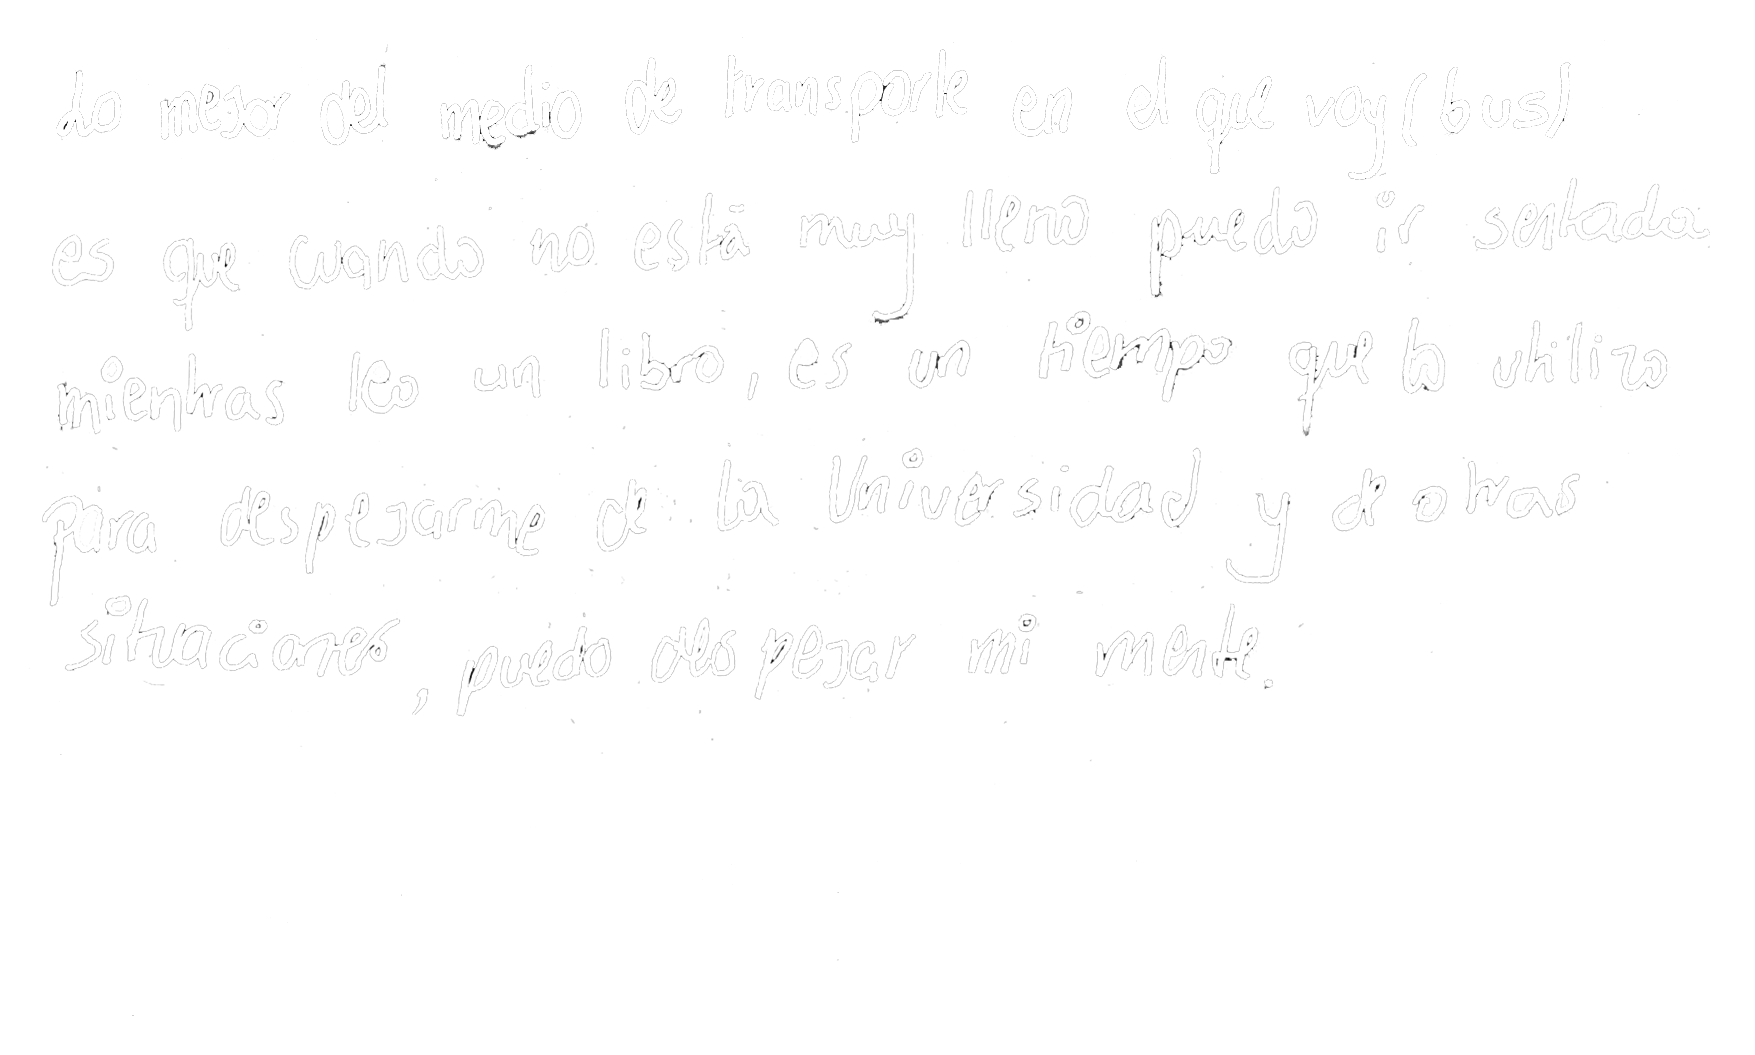 Lo mejor del medio de transporte en el que voy (bus)
es que cuando no está muy lleno puedo ir sentada
mientras leo un libro, es un tiempo que lo utilizo
para despejarme de la Universidad y de otras
situaciones, puedo despejar mi mente.